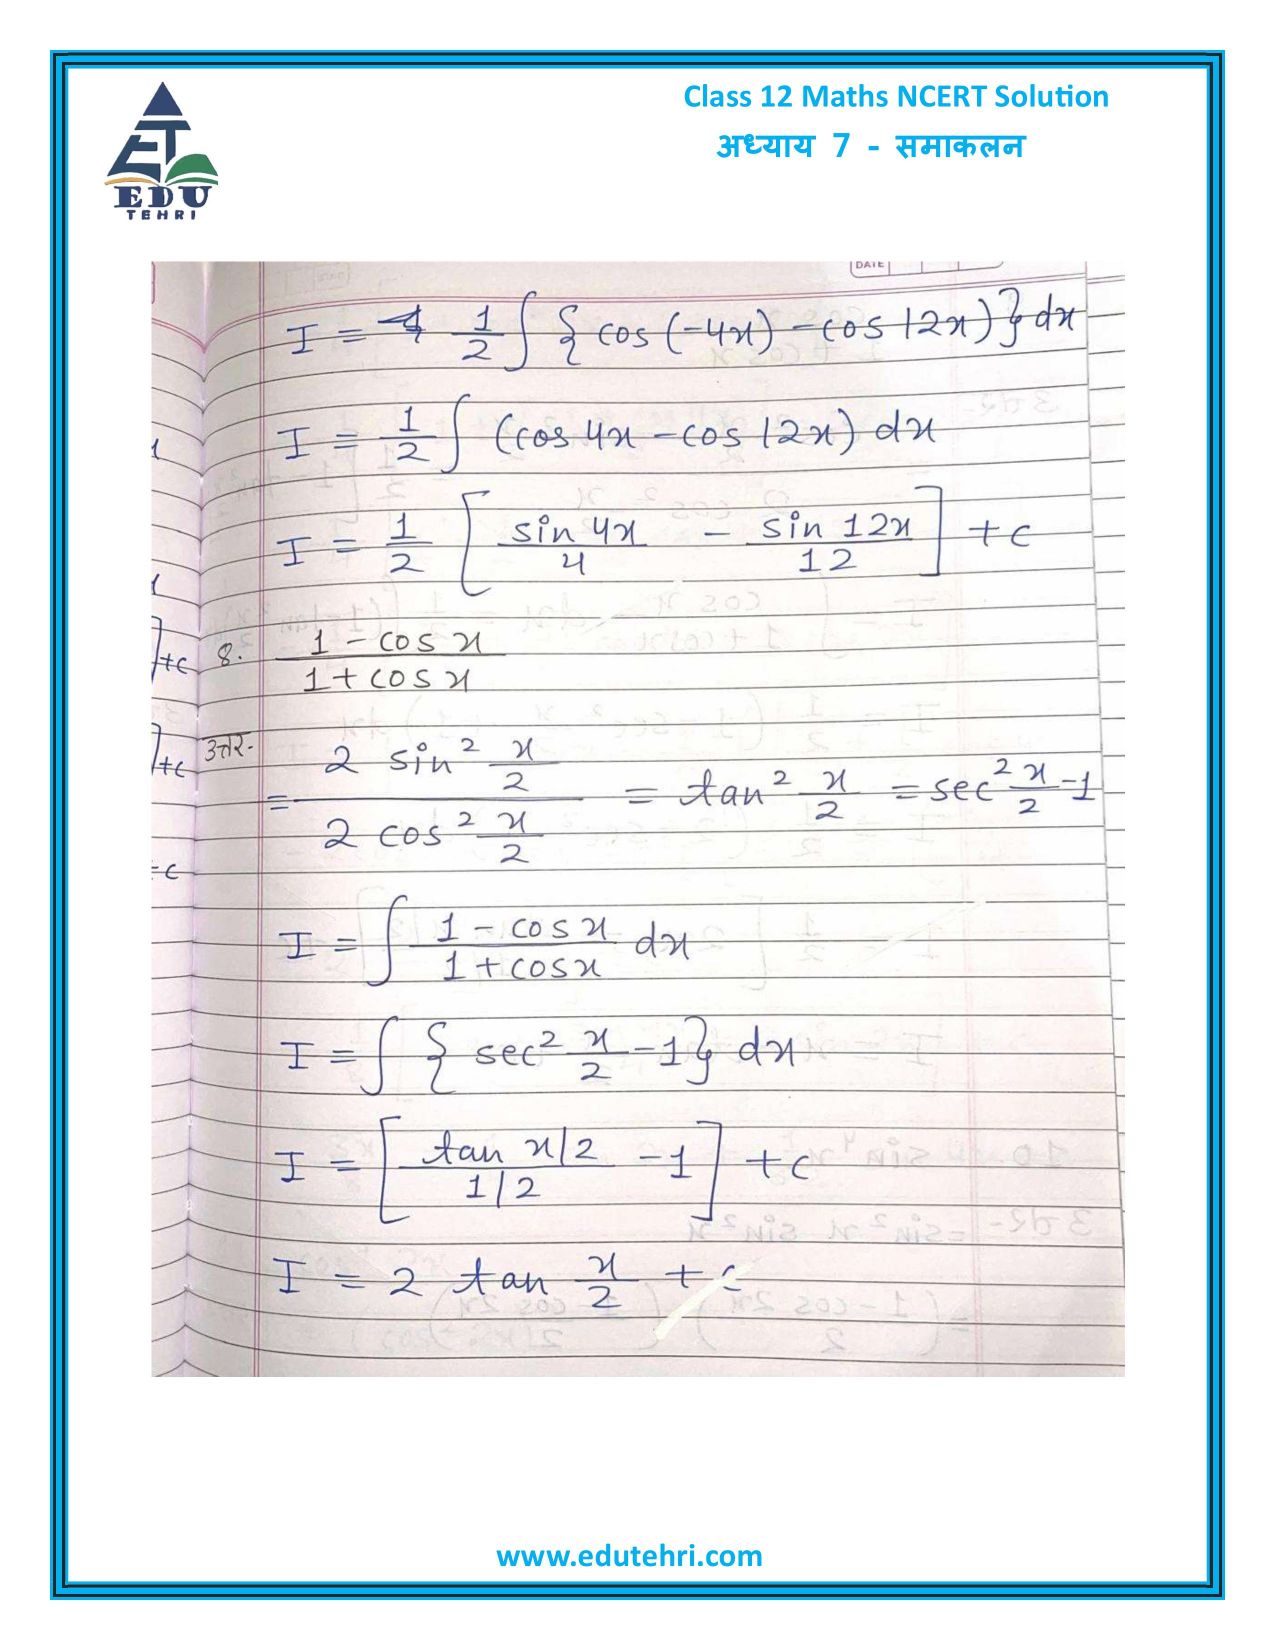 EDU
TEHRI
Class 12 Maths NCERT Solution
अध्याय 7 - समाकलन
DATE
I = 1/2 ∫ { cos (-4x) - cos 12x) } dx
I = 1/2 ∫ (cos 4x - cos 12x) dx
I = 1/2 [ sin 4x / 4 - sin 12x / 12 ] + c
]+c 8. 1 - cos x / 1 + cos x
]+c उत्तर- = 2 sin² x/2 / 2 cos² x/2 = tan² x/2 = sec² x/2 - 1
I = ∫ 1 - cos x / 1 + cos x dx
I = ∫ { sec² x/2 - 1 } dx
I = [ tan x/2 / 1/2 - 1 ] + c
I = 2 tan x/2 + c
www.edutehri.com